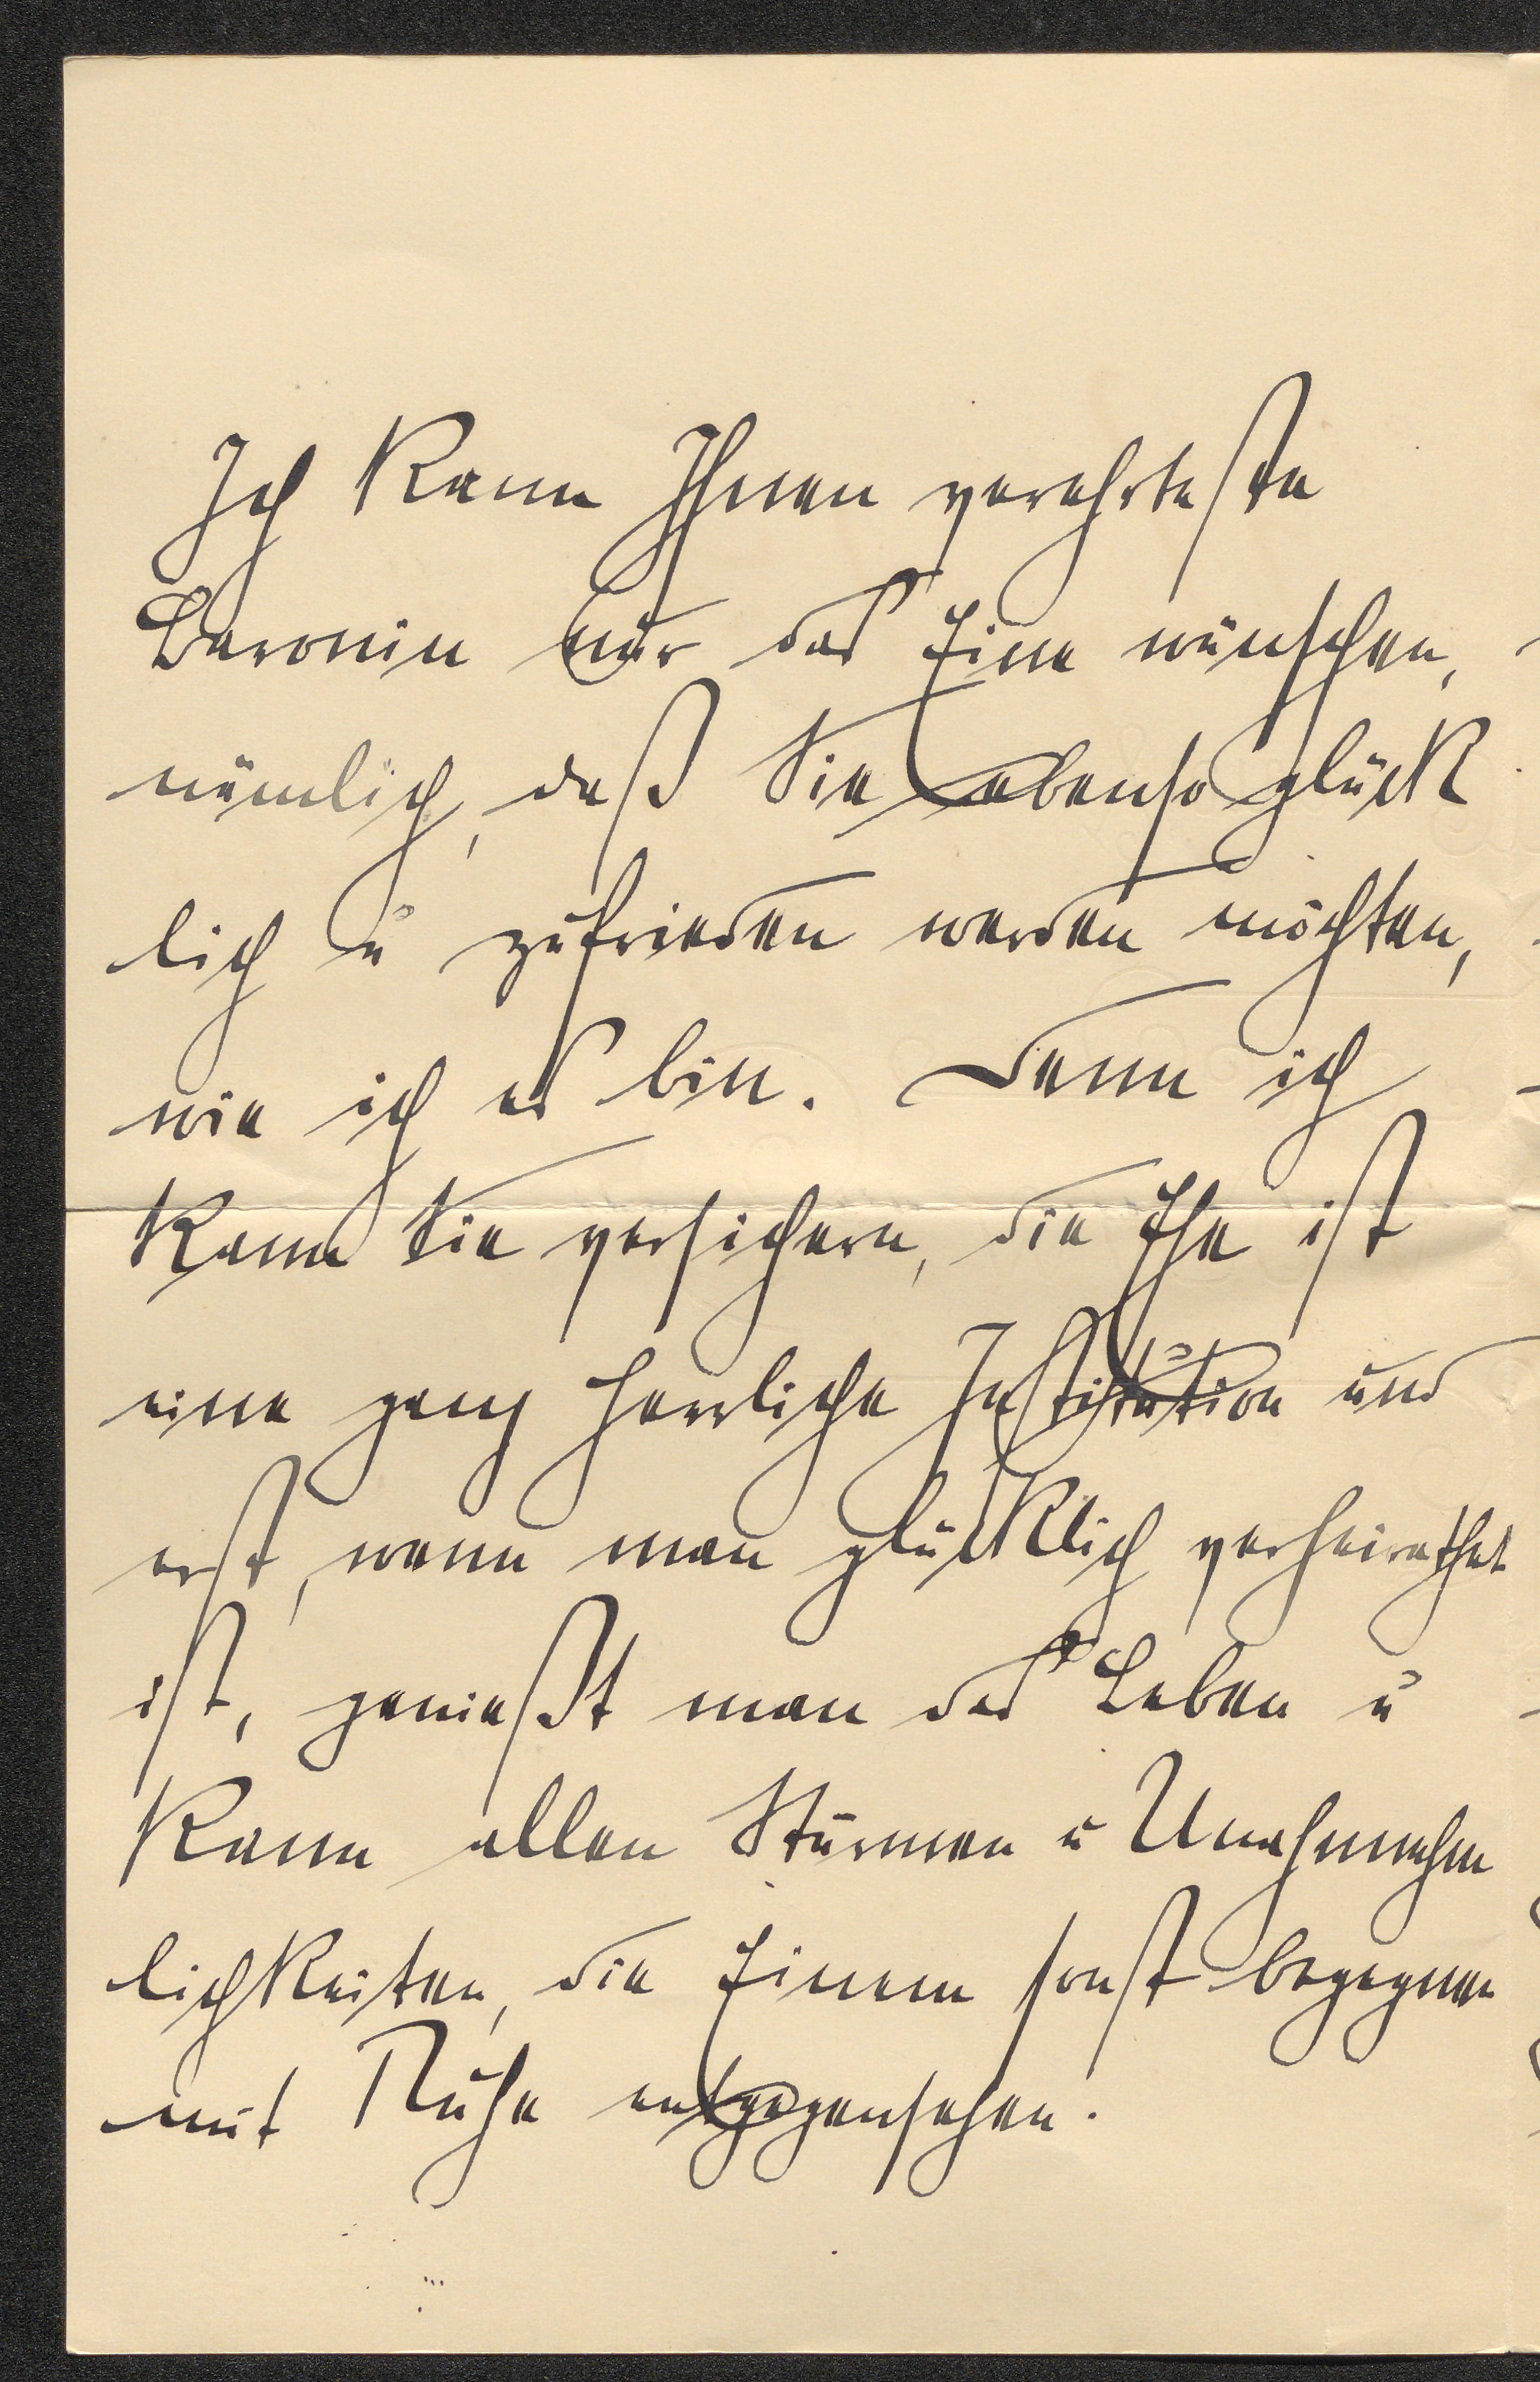 Ich kann Ihnen verehrteste
Baronin nur das Eine wünschen,
nämlich, daß Sie ebenso glück
lich u zufrieden werden möchten,
wie ich es bin. Denn ich
kann Sie versichern, die Ehe ist
eine ganz herrliche Institution und
erst, wenn man glücklich verheirathet
ist, genießt man das Leben u
kann allen Stürmen u Unahnnehm
lichkeiten, die Einem sonst begegnen
mit Ruhe entgegensehen.